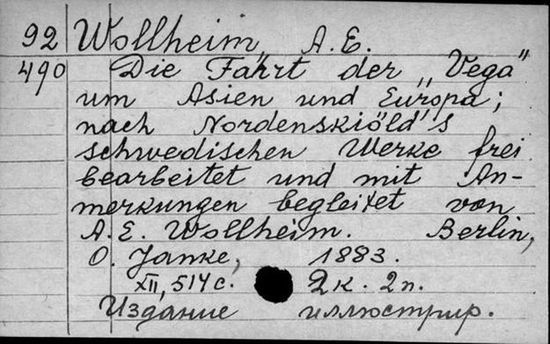 92 Wollheim, A. E.
490 Die Fahrt der „Vega“
um Asien und Europa;
nach Nordenskiöld's
schwedischen Werke frei
bearbeitet und mit An-
merkungen begleitet von
A. E. Wollheim. Berlin,
O. Janke, 1883.
XII, 514 с. 2 к. 2 п.
Издание иллюстрир.